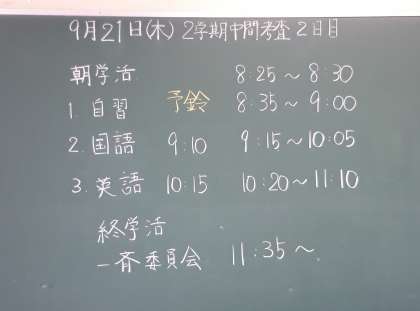 9月21日(木) 2学期中間考査 2日目
朝学活 8:25～8:30
1. 自習 予鈴 8:35～9:00
2. 国語 9:10 9:15～10:05
3. 英語 10:15 10:20～11:10
終学活
一斉委員会 11:35～